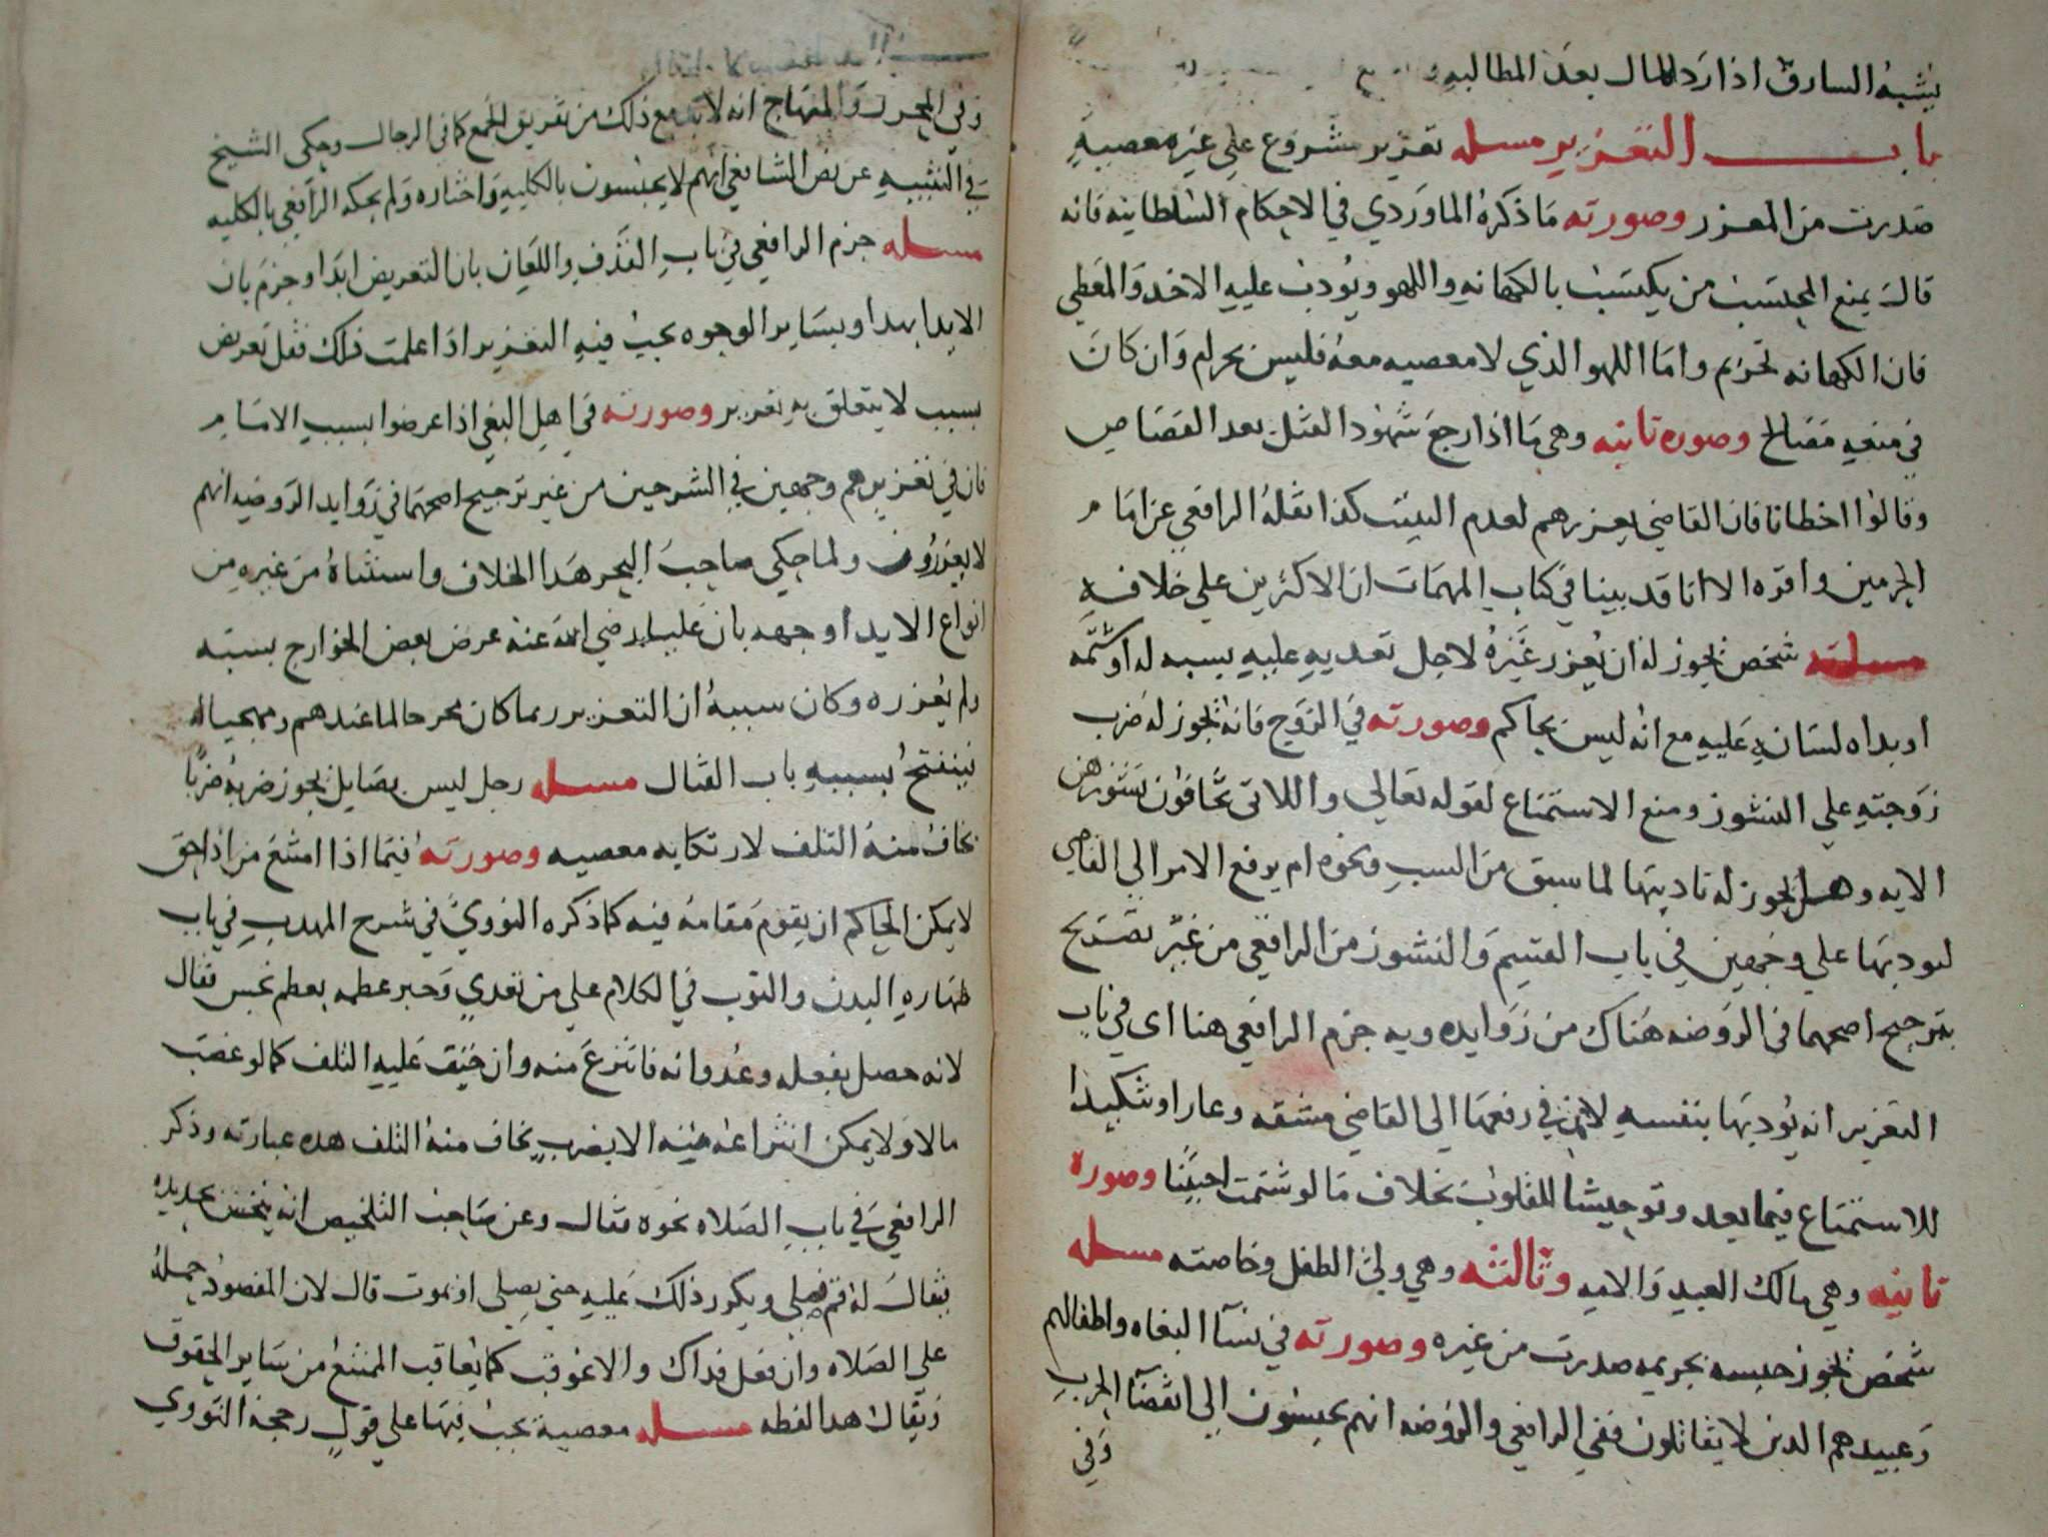 يشبه السارق اذا رد المال بعد المطالبه
باب التعزير مسله تعزير مشروع على غير معصية
صدرت من المعزر وصورته ما ذكره الماوردي في الاحكام السلطانيه فانه
قال يمنع المحتسب من يكتسب بالكهانه واللهو ويودب عليه الاخذ والمعطي
فان الكهانه تحريم واما اللهو الذي لا معصيه معه فليس بحرام وان كان
في منعه مصالح وصوره ثانيه وهي ما اذا رجع شهود القتل بعد القصاص
وقالوا اخطانا فان القاضي يعزرهم لعدم التثبت كذا نقله الرافعي عن امام
الحرمين واقره الا انا قد بينا في كتاب المهمات ان الاكثرين على خلافه
مسلة شخص يجوز له ان يعزر غيره لاجل تعديه عليه بسبه له او شتمه
او بداه لسانه عليه مع انه ليس بحاكم وصورته في الزوج فانه يجوز له ضرب
زوجته على النشوز ومنع الاستمتاع لقوله تعالى واللاتي تخافون نشوزهن
الايه وهل يجوز له تاديبها لما سبق من السب ونحوه ام يرفع الامر الى القاضي
ليودبها على وجهين في باب القسم والنشوز من الرافعي من غير تصريح
بترجيح اصحهما في الروضه هناك من زوايده وبه جزم الرافعي هنا اى في باب
التعزير انه يودبها بنفسه لان في رفعها الى القاضي مشقه وعارا وتنكيدا
للاستمتاع فيما بعد وتوحيشا للقلوب بخلاف ما لو شتمت اجنبيا وصورة
ثانيه وهي مالك العبد والامه وثالثه وهي ولي الطفل وخاصته مسله
شخص يجوز حبسه بجريمه صدرت من غيره وصورته في نسآ البغاه واطفالهم
وعبيدهم الذين لا يقاتلون ففي الرافعي والروضه انهم يحبسون الى انقضآ الحرب
وفي
وفي المحرر والمنهاج انه لا بد مع ذلك من تفريق الجمع كما في الرجال وحكى الشيخ
في التنبيه عن نص الشافعي انهم لا يحبسون بالكليه واختاره ولم يحكه الرافعي بالكليه
مسله جزم الرافعي في باب القذف واللعان بان التعريض ايذا وجزم بان
الايذا بهذا وبساير الوجوه يجب فيه التعزير اذا علمت ذلك فقل تعريض
بسبب لا يتعلق به تعزير وصورته في اهل البغي اذا عرضوا بسبب الامام
فان في تعزيرهم وجهين في الشرحين من غير ترجيح اصحهما في زوايد الروضه انهم
لا يعزرون ولما حكي صاحب البحر هذا الخلاف واستثناه من غيره من
انواع الايذا وجهه بان عليا رضي الله عنه عرض بعض الخوارج بسبه
ولم يعزره وكان سببه ان التعزير ربما كان محرجا لما عندهم ومهيجا له
فينفتح بسببه باب القتال مسله رجل ليس بصايل يجوز ضربه ضربا
يخاف منه التلف لارتكابه معصيه وصورته فيما اذا امتنع من اداحق
لا يمكن الحاكم ان يقوم مقامه فيه كما ذكره النووي في شرح المهذب في باب
طهاره البدن والثوب في الكلام على من تعدي وجبر عظمه بعظم نجس فقال
لانه حصل بفعله وعدوانه فانتزع منه وان خيف عليه التلف كما لو غصب
مالا ولا يمكن انتزاعه منه الا بضرب يخاف منه التلف هذه عبارته وذكر
الرافعي في باب الصلاه نحوه فقال وعن صاحب التلخيص انه ينخس بحديده
فيقال له قم فصلي ويكرر ذلك عليه حتى يصلي او يموت قال لان المقصود حمله
على الصلاه وان فعل فذاك والا عوقب كما يعاقب الممتنع من ساير الحقوق
ويقال هذا لفظه مسله معصية يجب فيها على قول رجحه النووي